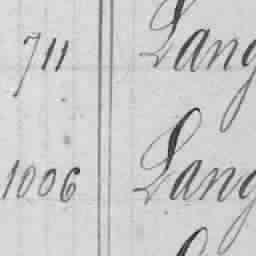 711 Lang
1006 Lang